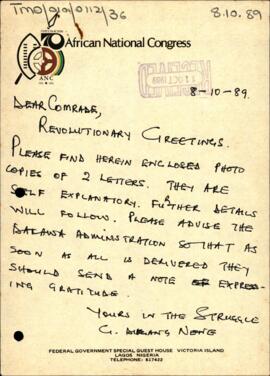 TMO/010/0112/36
8.10.89
70
ANC
African National Congress
OCT 1989
8-10-89.
DEAR COMRADE,
REVOLUTIONARY GREETINGS.
PLEASE FIND HEREIN ENCLOSED PHOTO
COPIES OF 2 LETTERS. THEY ARE
SELF EXPLANATORY. FURTHER DETAILS
WILL FOLLOW. PLEASE ADVISE THE
DAKAWA ADMINISTRATION SO THAT AS
SOON AS ALL IS DERIVERED THEY
SHOULD SEND A NOTE OF EXPRES-
SING GRATITUDE.
YOURS IN THE STRUGGLE
FEDERAL GOVERNMENT SPECIAL GUEST HOUSE VICTORIA ISLAND
LAGOS NIGERIA
TELEPHONE: 617422